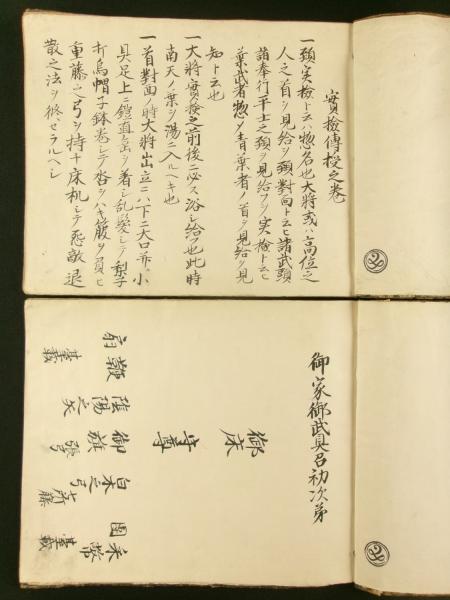 實檢傳授之巻
一頸実檢ト云ハ惣名也大將或ハ高位之
人之首ヲ見給ヲ頸對向ト云ヒ諸武頭
諸奉行平士之頸ヲ見給フヲ実檢ト云ヒ
葉武者惣〆青葉者ノ首ヲ見給ヲ見
知ト云也
一大將實檢之前後ニ必ス浴シ給フ也此時
南天ノ葉ヲ湯ニ入ルヘキ也
一首對面ノ時大將出立ニハ下ニ大口并小
具足上ニ鎧直垂ヲ着シ乱髪シテ梨子
打烏帽子鉢巻シテ沓ヲハキ箙ヲ負ヒ
重藤之弓ヲ持チ床机シテ悪敵退
散之法ヲ修セラルヘシ
御家御武具召初次第
御床
守尊
團 白木之弓 御旗 陰陽之矢 鞭 扇
采幣 臺載 七所藤 張弓 臺載